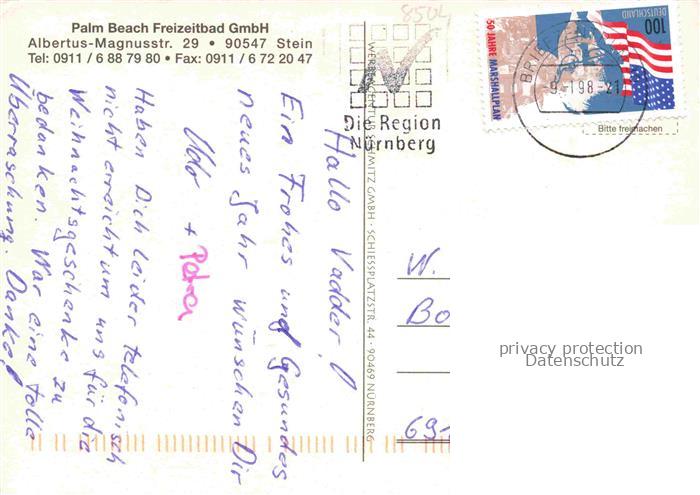 Palm Beach Freizeitbad GmbH
Albertus-Magnusstr. 29 • 90547 Stein
Tel: 0911 / 6 88 79 80 • Fax: 0911 / 6 72 20 47
8504
Die Region
Nürnberg
DEUTSCHLAND
100
50 JAHRE MARSHALLPLAN
-9.-1.98-21
Bitte freimachen
WERBEAGENTUR SCHMITZ GMBH · SCHIESSPLATZSTR. 44 · 90469 NÜRNBERG
Hallo Vadder!
Ein Frohes und Gesundes
neues Jahr wünschen Dir
Udo + Petra
Haben Dich leider telefonisch
nicht erreicht um uns für die
Weihnachtsgeschenke zu
bedanken. War eine tolle
Überraschung. Danke!
W.
Bo
69-
privacy protection
Datenschutz